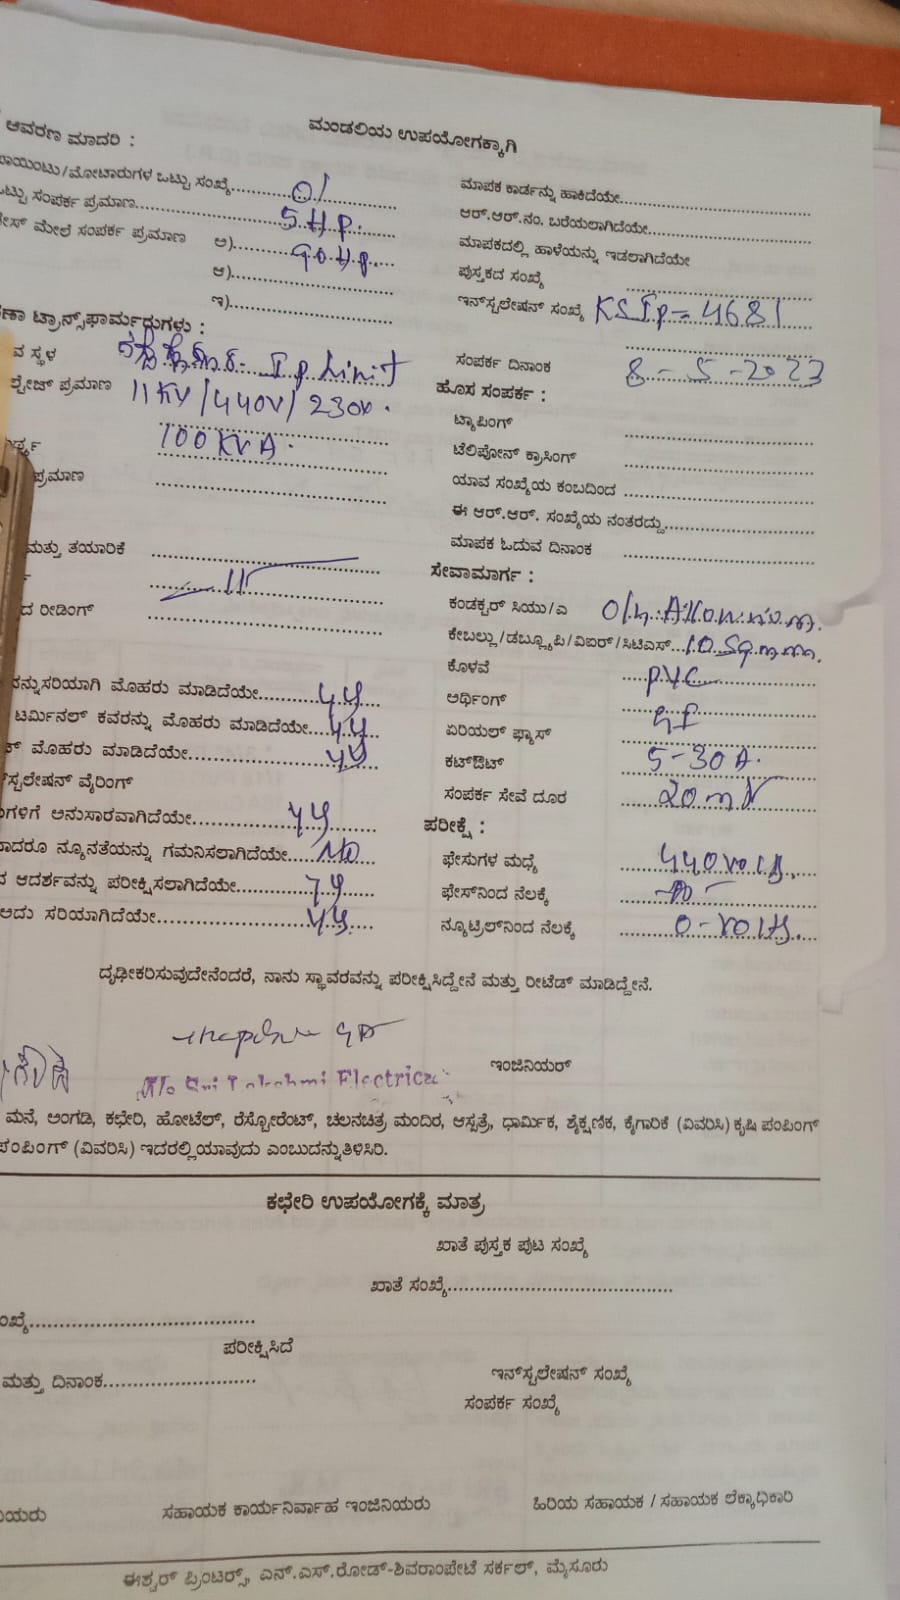 ಮಂಡಲಿಯ ಉಪಯೋಗಕ್ಕಾಗಿ
ಆವರಣ ಮಾದರಿ :
ಪಾಯಿಂಟು/ಮೋಟಾರುಗಳ ಒಟ್ಟು ಸಂಖ್ಯೆ 01
ಒಟ್ಟು ಸಂಪರ್ಕ ಪ್ರಮಾಣ 5 HP.
ಮೇಲೆ ಸಂಪರ್ಕ ಪ್ರಮಾಣ ಅ)
ಆ)
ಇ)
ಟ್ರಾನ್ಸ್‌ಫಾರ್ಮರುಗಳು :
ಸ್ಥಳ Ip Limit
ಪ್ರಮಾಣ 11 KV/440V/230V.
100 KVA.
ಪ್ರಮಾಣ
ಮತ್ತು ತಯಾರಿಕೆ
ರೀಡಿಂಗ್
ಸರಿಯಾಗಿ ಮೊಹರು ಮಾಡಿದೆಯೇ
ಟರ್ಮಿನಲ್ ಕವರನ್ನು ಮೊಹರು ಮಾಡಿದೆಯೇ
ಮೊಹರು ಮಾಡಿದೆಯೇ
ವೈರಿಂಗ್
ಅನುಸಾರವಾಗಿದೆಯೇ
ನ್ಯೂನತೆಯನ್ನು ಗಮನಿಸಲಾಗಿದೆಯೇ NO
ಆದರ್ಶವನ್ನು ಪರೀಕ್ಷಿಸಲಾಗಿದೆಯೇ
ಅದು ಸರಿಯಾಗಿದೆಯೇ
ಮಾಪಕ ಕಾರ್ಡನ್ನು ಹಾಕಿದೆಯೇ
ಆರ್.ಆರ್.ನಂ. ಬರೆಯಲಾಗಿದೆಯೇ
ಮಾಪಕದಲ್ಲಿ ಹಾಳೆಯನ್ನು ಇಡಲಾಗಿದೆಯೇ
ಪುಸ್ತಕದ ಸಂಖ್ಯೆ
ಇನ್‌ಸ್ಟಲೇಷನ್ ಸಂಖ್ಯೆ KSIP-4681
ಸಂಪರ್ಕ ದಿನಾಂಕ 8-5-2023
ಹೊಸ ಸಂಪರ್ಕ :
ಟ್ಯಾಪಿಂಗ್
ಟೆಲಿಪೋನ್ ಕ್ರಾಸಿಂಗ್
ಯಾವ ಸಂಖ್ಯೆಯ ಕಂಬದಿಂದ
ಈ ಆರ್.ಆರ್. ಸಂಖ್ಯೆಯ ನಂತರದ್ದು
ಮಾಪಕ ಓದುವ ದಿನಾಂಕ
ಸೇವಾಮಾರ್ಗ :
ಕಂಡಕ್ಟರ್ ಸಿಯು/ಎ
ಕೇಬಲ್ಲು/ಡಬ್ಲ್ಯೂಪಿ/ವಿಐರ್/ಸಿಟಿಎಸ್ 10 Sqmm.
ಕೊಳವೆ PVC
ಅರ್ಥಿಂಗ್
ಏರಿಯಲ್ ಫ್ಯೂಸ್
ಕಟ್‌ಔಟ್ 5-30A.
ಸಂಪರ್ಕ ಸೇವೆ ದೂರ
ಪರೀಕ್ಷೆ :
ಫೇಸುಗಳ ಮಧ್ಯೆ 440 volts.
ಫೇಸ್‌ನಿಂದ ನೆಲಕ್ಕೆ
ನ್ಯೂಟ್ರಲ್‌ನಿಂದ ನೆಲಕ್ಕೆ 0-volts.
ದೃಢೀಕರಿಸುವುದೇನೆಂದರೆ, ನಾನು ಸ್ಥಾವರವನ್ನು ಪರೀಕ್ಷಿಸಿದ್ದೇನೆ ಮತ್ತು ರೀಟೆಡ್ ಮಾಡಿದ್ದೇನೆ.
ಇಂಜಿನಿಯರ್
M/s Sri Lakshmi Electrica
ಮನೆ, ಅಂಗಡಿ, ಕಛೇರಿ, ಹೋಟೆಲ್, ರೆಸ್ಟೋರೆಂಟ್, ಚಲನಚಿತ್ರ ಮಂದಿರ, ಆಸ್ಪತ್ರೆ, ಧಾರ್ಮಿಕ, ಶೈಕ್ಷಣಿಕ, ಕೈಗಾರಿಕೆ (ವಿವರಿಸಿ) ಕೃಷಿ ಪಂಪಿಂಗ್
ಪಂಪಿಂಗ್ (ವಿವರಿಸಿ) ಇದರಲ್ಲಿ ಯಾವುದು ಎಂಬುದನ್ನು ತಿಳಿಸಿರಿ.
ಕಛೇರಿ ಉಪಯೋಗಕ್ಕೆ ಮಾತ್ರ
ಖಾತೆ ಪುಸ್ತಕ ಪುಟ ಸಂಖ್ಯೆ
ಖಾತೆ ಸಂಖ್ಯೆ
ಪರೀಕ್ಷಿಸಿದೆ
ಮತ್ತು ದಿನಾಂಕ
ಇನ್‌ಸ್ಟಲೇಷನ್ ಸಂಖ್ಯೆ
ಸಂಪರ್ಕ ಸಂಖ್ಯೆ
ಸಹಾಯಕ ಕಾರ್ಯನಿರ್ವಾಹ ಇಂಜಿನಿಯರು
ಹಿರಿಯ ಸಹಾಯಕ / ಸಹಾಯಕ ಲೆಕ್ಕಾಧಿಕಾರಿ
ಈಶ್ವರ್ ಪ್ರಿಂಟರ್ಸ್, ಎನ್.ಎಸ್.ರೋಡ್-ಶಿವರಾಂಪೇಟೆ ಸರ್ಕಲ್, ಮೈಸೂರು